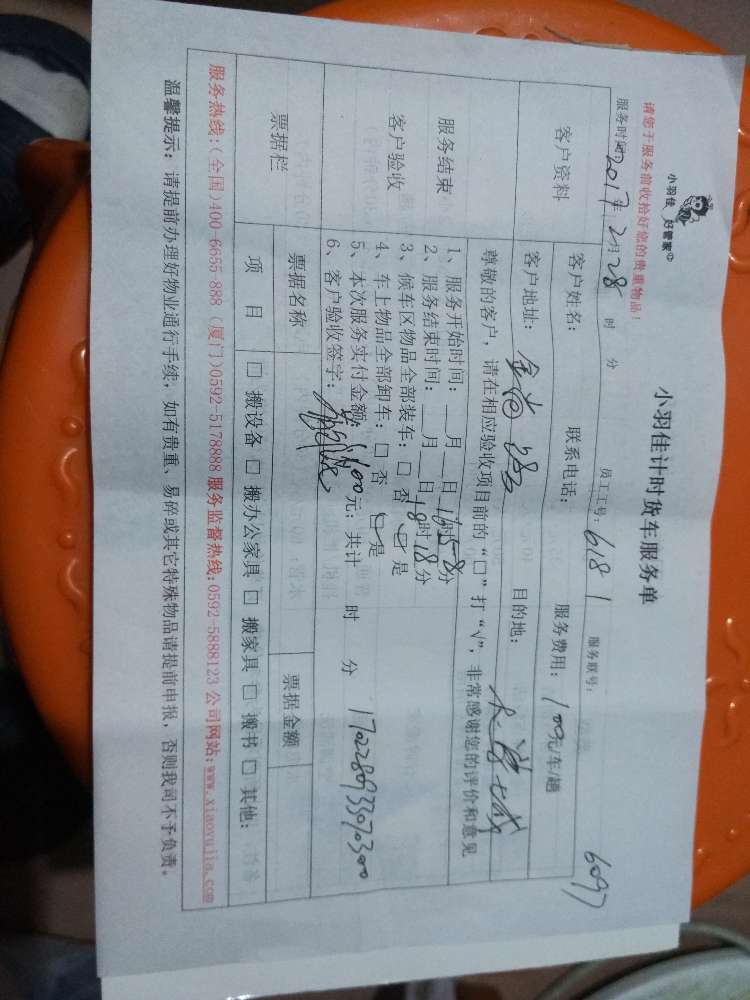 小羽佳 好管家
小羽佳计时货车服务单
请您于服务前收拾好您的贵重物品！
服务时间 2017年2月28 时 分 员工工号: 6181 服务联号: 6097
客户资料 客户姓名: 联系电话: 服务费用: 100元/车/趟
客户地址: 金尚 目的地:
尊敬的客户，请在相应验收项目前的“□”打“√”，非常感谢您的评价和意见
服务结束
客户验收
1、服务开始时间: __月__日16时58分
2、服务结束时间: __月__日18时18分
3、候车区物品全部装车: □ 否 □ 是
4、车上物品全部卸车: □ 否 □ 是
5、本次服务实付金额: 100元; 共计 时 分
6、客户验收签字:
票据栏 票据名称 票据金额
项 目 □ 搬设备 □ 搬办公家具 □ 搬家具 □ 搬书 □ 其他:
服务热线:(全国)400-6655-888 (厦门)0592-5178888 服务监督热线:0592-5888123 公司网站:www.xiaoyujia.com
温馨提示: 请提前办理好物业通行手续，如有贵重、易碎或其它特殊物品请提前申报，否则我司不予负责。